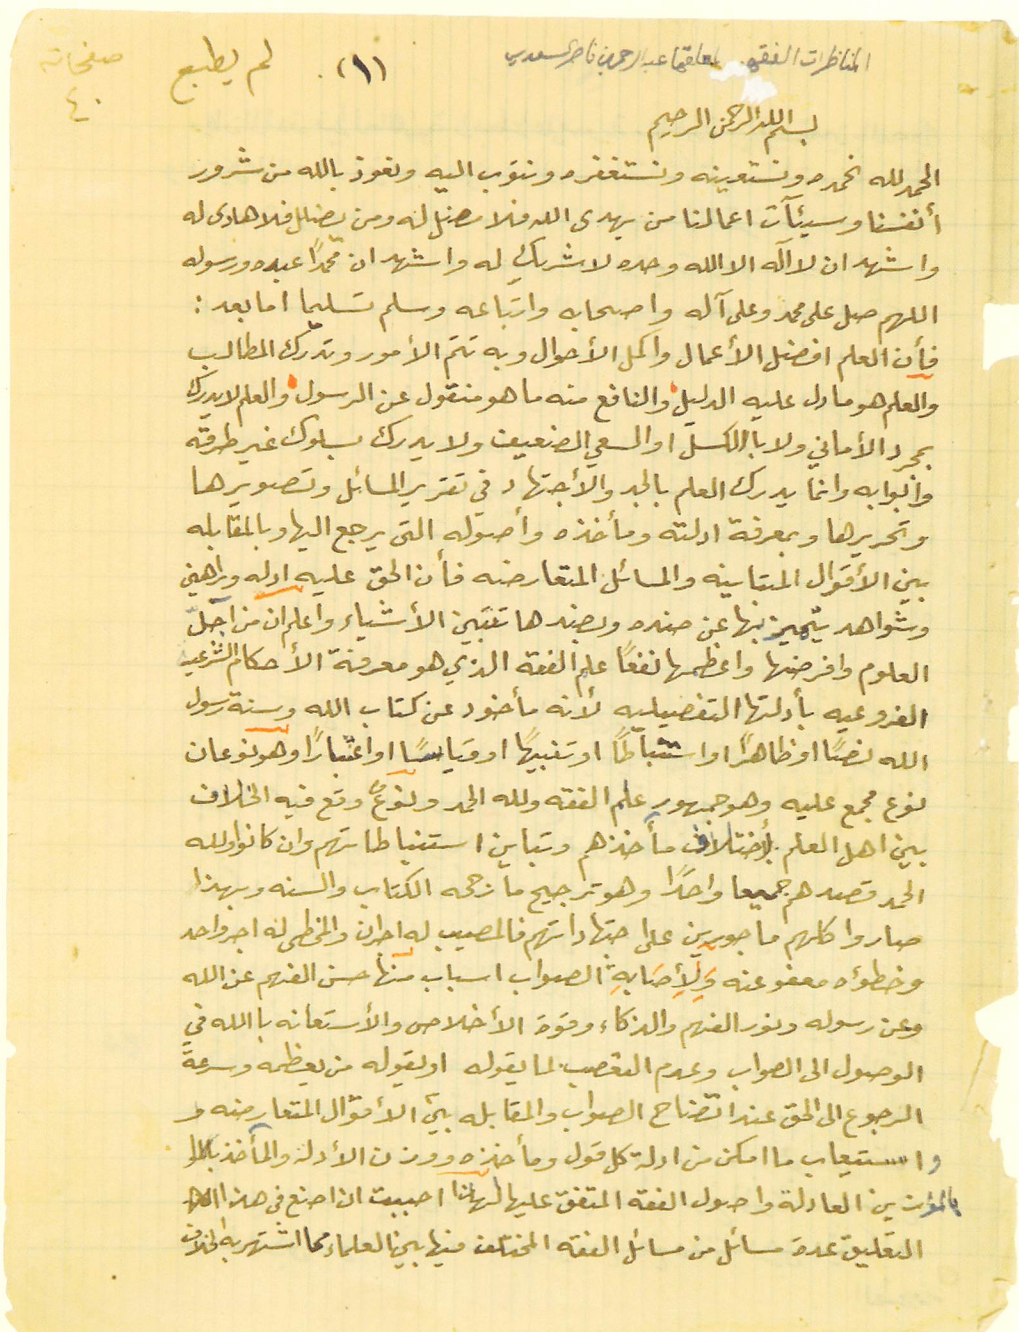 المناظرات الفقهية لمعلقها عبد الرحمن بن ناصر السعدي
(١)
لم يطبع
صفحاته
٤٠
بسم الله الرحمن الرحيم
الحمد لله نحمده ونستعينه ونستغفره ونتوب اليه ونعوذ بالله من شرور
أنفسنا وسيئآت اعمالنا من يهدى الله فلا مضل له ومن يضلل فلا هادى له
واشهد ان لا آله الا الله وحده لا شريك له واشهد ان محمدًا عبده ورسوله
اللهم صل على محمد وعلى آله واصحابه واتباعه وسلم تسليما اما بعد :
فأن العلم افضل الأعمال واكمل الأحوال وبه تتم الأمور وتدرك المطالب
والعلم هو ما دل عليه الدليل والنافع منه ما هو منقول عن الرسول والعلم لا يدرك
بمجرد الأماني ولا بالكسل او السعي الضعيف ولا يدرك بسلوك غير طرقه
وابوابه وانما يدرك العلم بالجد والأجتهاد في تقرير المسائل وتصويرها
وتحريرها وبمعرفة ادلته ومأخذه وأصوله التى يرجع اليها وبالمقابله
بين الأقوال المتباينه والمسائل المتعارضه فأن الحق عليه ادله وبراهين
وشواهد يتميز بها عن ضده وبضدها تتبين الأشياء واعلم ان من اجل
العلوم وافرضها واعظمها نفعًا علم الفقه الذي هو معرفة الأحكام الشرعيه
الفروعيه بأدلتها التفصيليه لأنه مأخوذ عن كتاب الله وسنة رسول
الله نصًا او ظاهرًا او استنباطًا او تنبيهًا او قياسًا او اعتبارًا وهو نوعان
نوع مجمع عليه وهو جمهور علم الفقه ولله الحمد ونوع وقع فيه الخلاف
بين اهل العلم لأختلاف مأخذهم وتباين استنباطاتهم وان كانوا ولله
الحمد قصدهم جميعا واحدًا وهو ترجيح ما رجحه الكتاب والسنه وبهذا
صاروا كلهم ماجورين على اجتهاداتهم فالمصيب له اجران والمخطى له اجر واحد
وخطؤه معفو عنه وَلِأِصَابةِ الصواب اسباب منها حسن الفهم عن الله
وعن رسوله ونور الفهم والذكاء وقوة الأخلاص والأستعانه بالله في
الوصول الى الصواب وعدم التعصب لما يقوله او يقوله من يعظمه وسرعة
الرجوع الى الحق عند اتضاح الصواب والمقابله بين الأقوال المتعارضه و
واستيعاب ما امكن من ادلة كل قول ومأخذه ووزن الأدله والمأخذ
بالموازين العادلة واصول الفقه المتفق عليها لهذا احببت ان اصنع فى هذا
التعليق عدة مسائل من مسائل الفقه المختلف فيها بين العلماء مما اشتهر به الخلاف